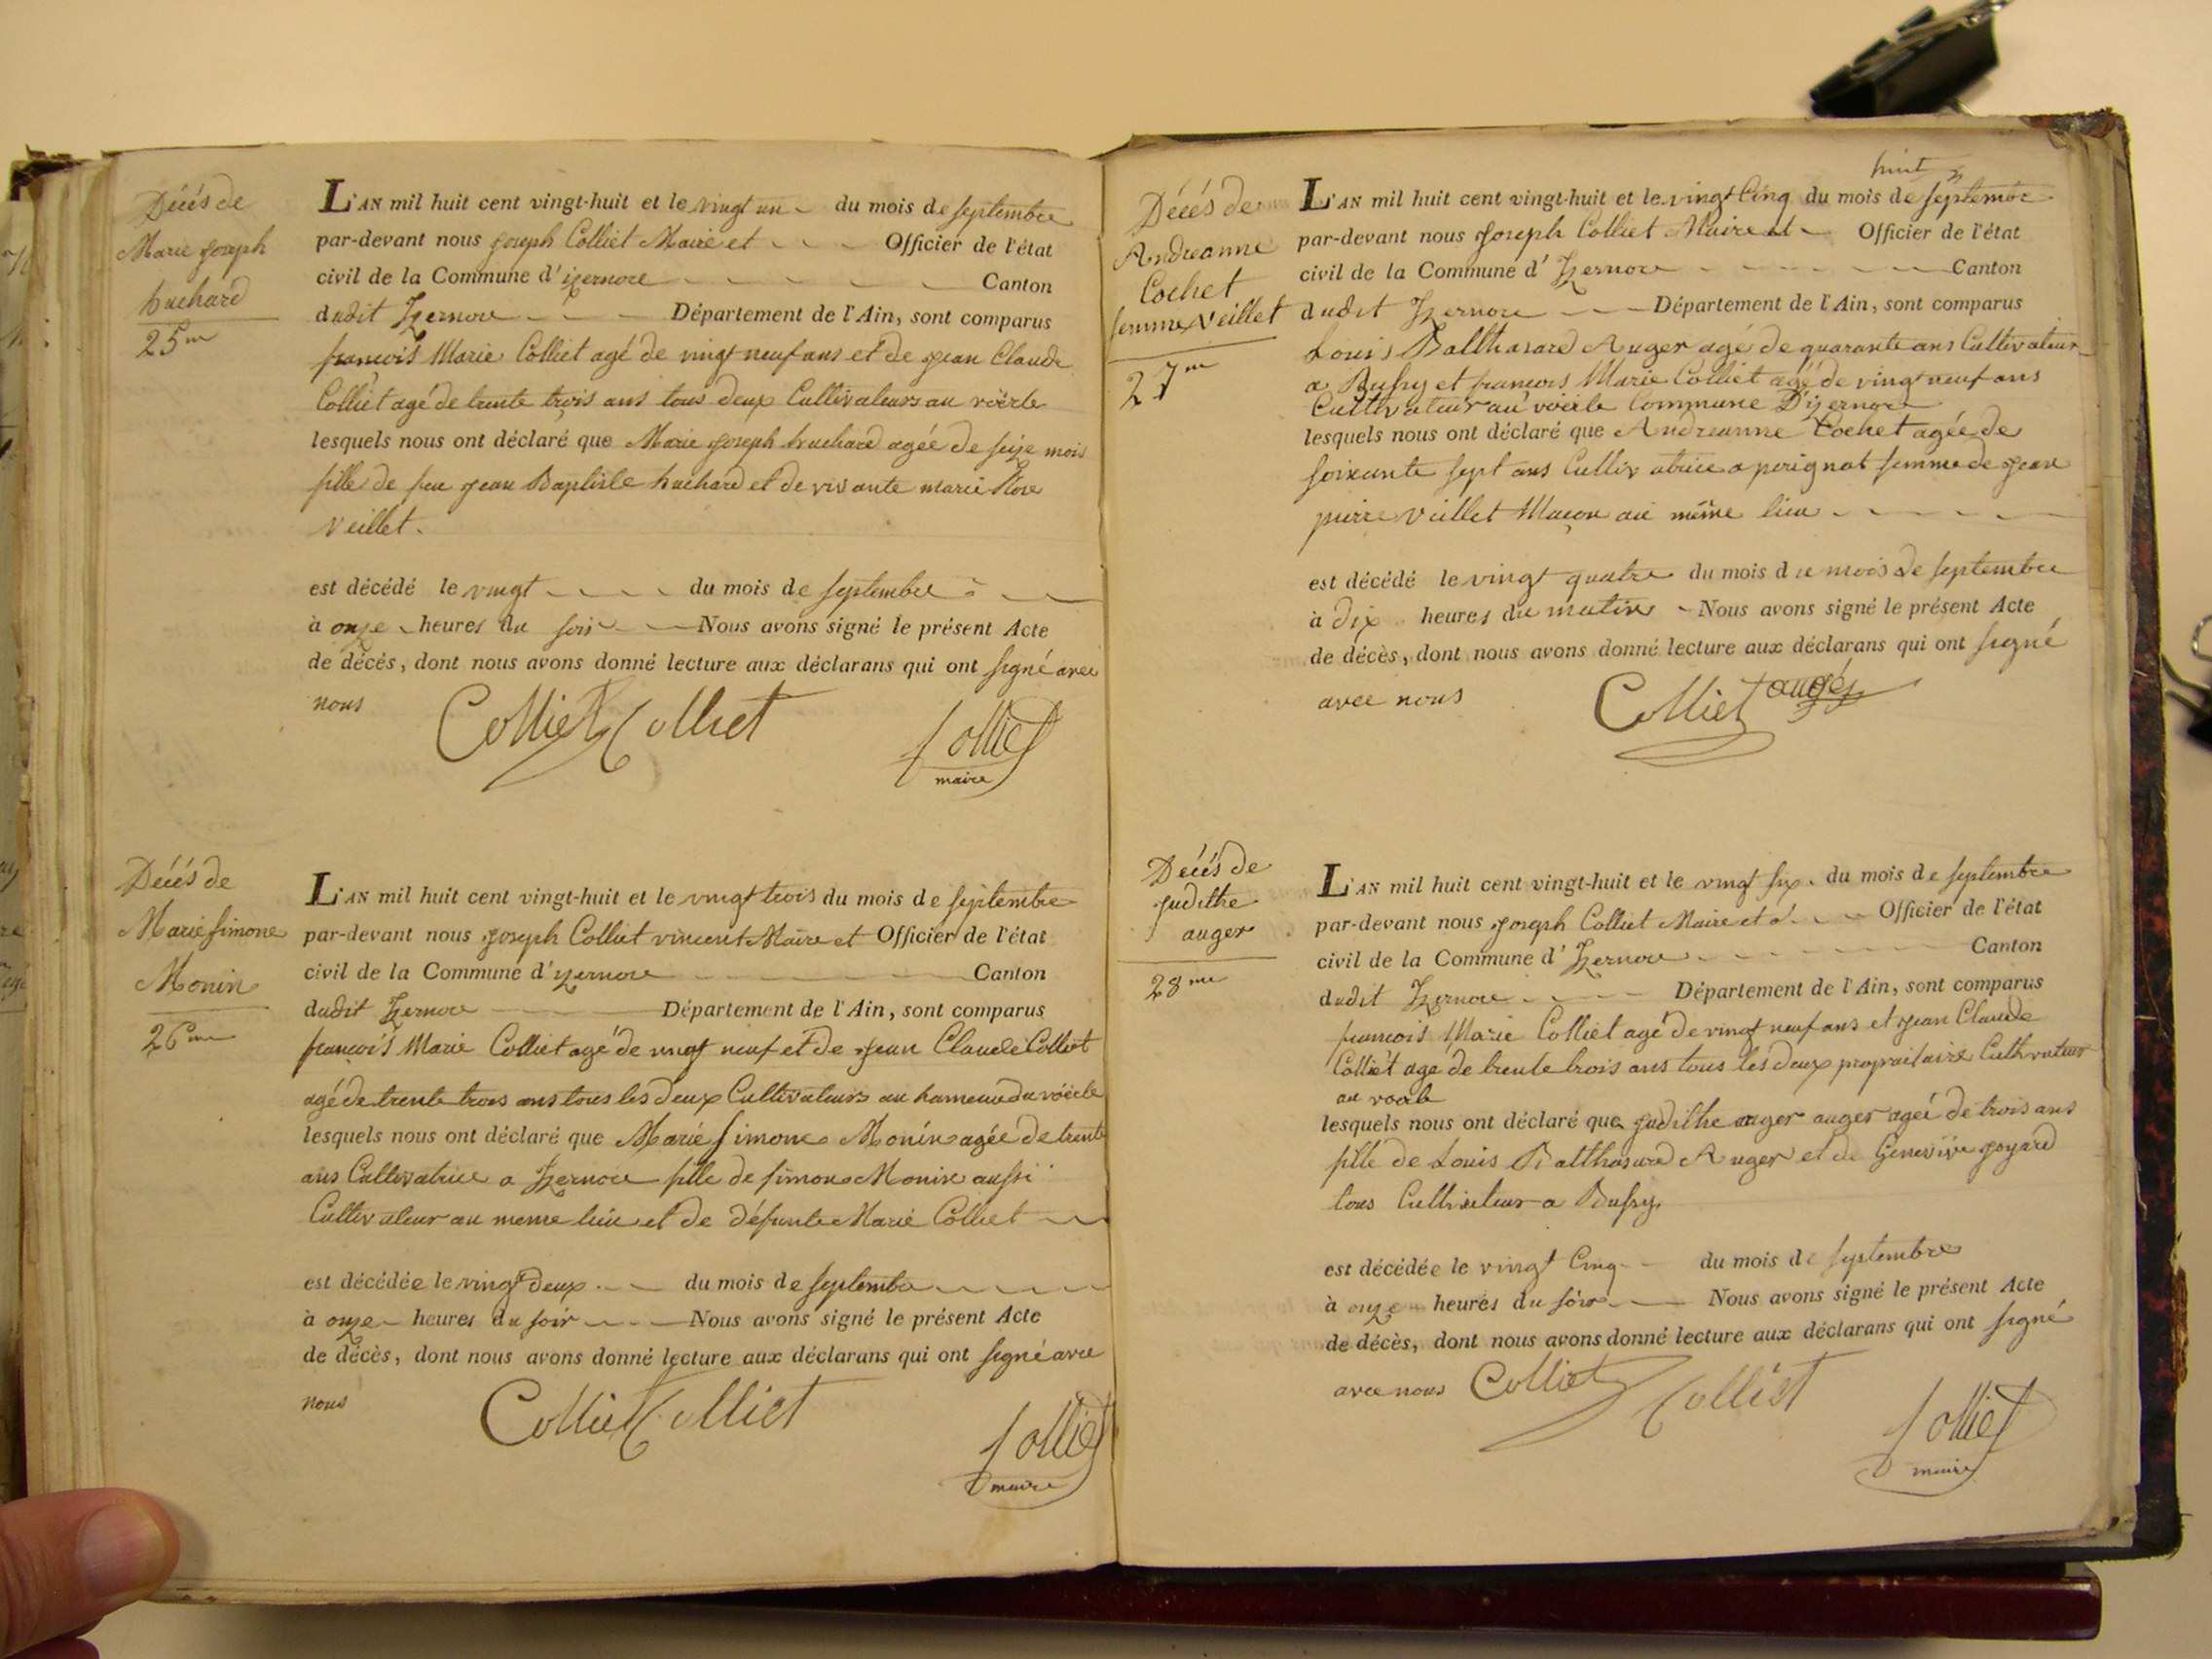 Décés de
Marie joseph
huchard
25me
L'AN mil huit cent vingt-huit et le vingt un du mois de septembre
par-devant nous joseph Colliet Maire et Officier de l'état
civil de la Commune d'izernore Canton
dudit Izernore Département de l'Ain, sont comparus
françois Marie Colliet agé de vingt neuf ans et de jean Claude
Colliet agé de trente trois ans tous deux Cultivateurs au voërle
lesquels nous ont déclaré que Marie joseph huchard agée de seize mois
fille de feu jean Baptiste huchard et de vivante marie Rose
Veillet.
est décédé le vingt du mois de septembre
à onze heures du soir Nous avons signé le présent Acte
de décès, dont nous avons donné lecture aux déclarans qui ont signé avec
nous Colliet Colliet Colliet
maire
Décés de
Marie simone
Monin
26me
L'AN mil huit cent vingt-huit et le vingt trois du mois de septembre
par-devant nous joseph Colliet vincent Maire et Officier de l'état
civil de la Commune d'yzernore Canton
dudit Izernore Département de l'Ain, sont comparus
françois Marie Colliet agé de vingt neuf et de jean Claude Colliet
agé de trente trois ans tous les deux Cultivateurs au hameau du voërle
lesquels nous ont déclaré que Marie simone Monin agée de trente
ans Cultivatrice a Izernore fille de simon Monin aussi
Cultivateur au meme lieu et de défunte Marie Colliet
est décédée le vingt deux du mois de septembre
à onze heures du soir Nous avons signé le présent Acte
de décès, dont nous avons donné lecture aux déclarans qui ont signé avec
nous Colliet Colliet Colliet
maire
Décés de
Andreanne
Cochet
femme Veillet
27me
huit
L'AN mil huit cent vingt-huit et le vingt Cinq du mois de septembre
par-devant nous joseph Colliet Maire et Officier de l'état
civil de la Commune d'Izernore Canton
dudit Izernore Département de l'Ain, sont comparus
Louis Balthasard Auger agé de quarante ans Cultivateur
a Bussy et francois Marie Colliet agé de vingt neuf ans
Cultivateur au voërle Commune D'izernore
lesquels nous ont déclaré que Andreanne Cochet agée de
soixante sept ans Cultivatrice a perignat femme de jean
pierre Veillet Maçon au même lieu
est décédé le vingt quatre du mois du mois de septembre
à dix heures du matin Nous avons signé le présent Acte
de décès, dont nous avons donné lecture aux déclarans qui ont signé
avec nous Colliet auger
Décés de
judithe
auger
28me
L'AN mil huit cent vingt-huit et le vingt six du mois de septembre
par-devant nous joseph Colliet Maire et Officier de l'état
civil de la Commune d'Izernore Canton
dudit Izernore Département de l'Ain, sont comparus
francois Marie Colliet agé de vingt neuf ans et jean Claude
Colliet age de trente trois ans tous les deux propraitaire Cultivateur
au voërle
lesquels nous ont déclaré que judithe auger auger agée de trois ans
fille de Louis Balthasard Auger et de Genevive joyard
tous Cultivateur a Bussy
est décédée le vingt Cinq du mois de septembre
à onze heures du soir Nous avons signé le présent Acte
de décès, dont nous avons donné lecture aux déclarans qui ont signé
avec nous Colliet Colliet Colliet
maire